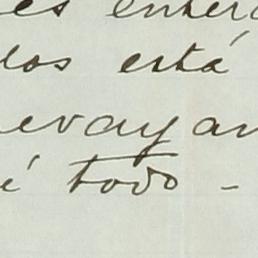 es enter
los está
evayan
é todo -